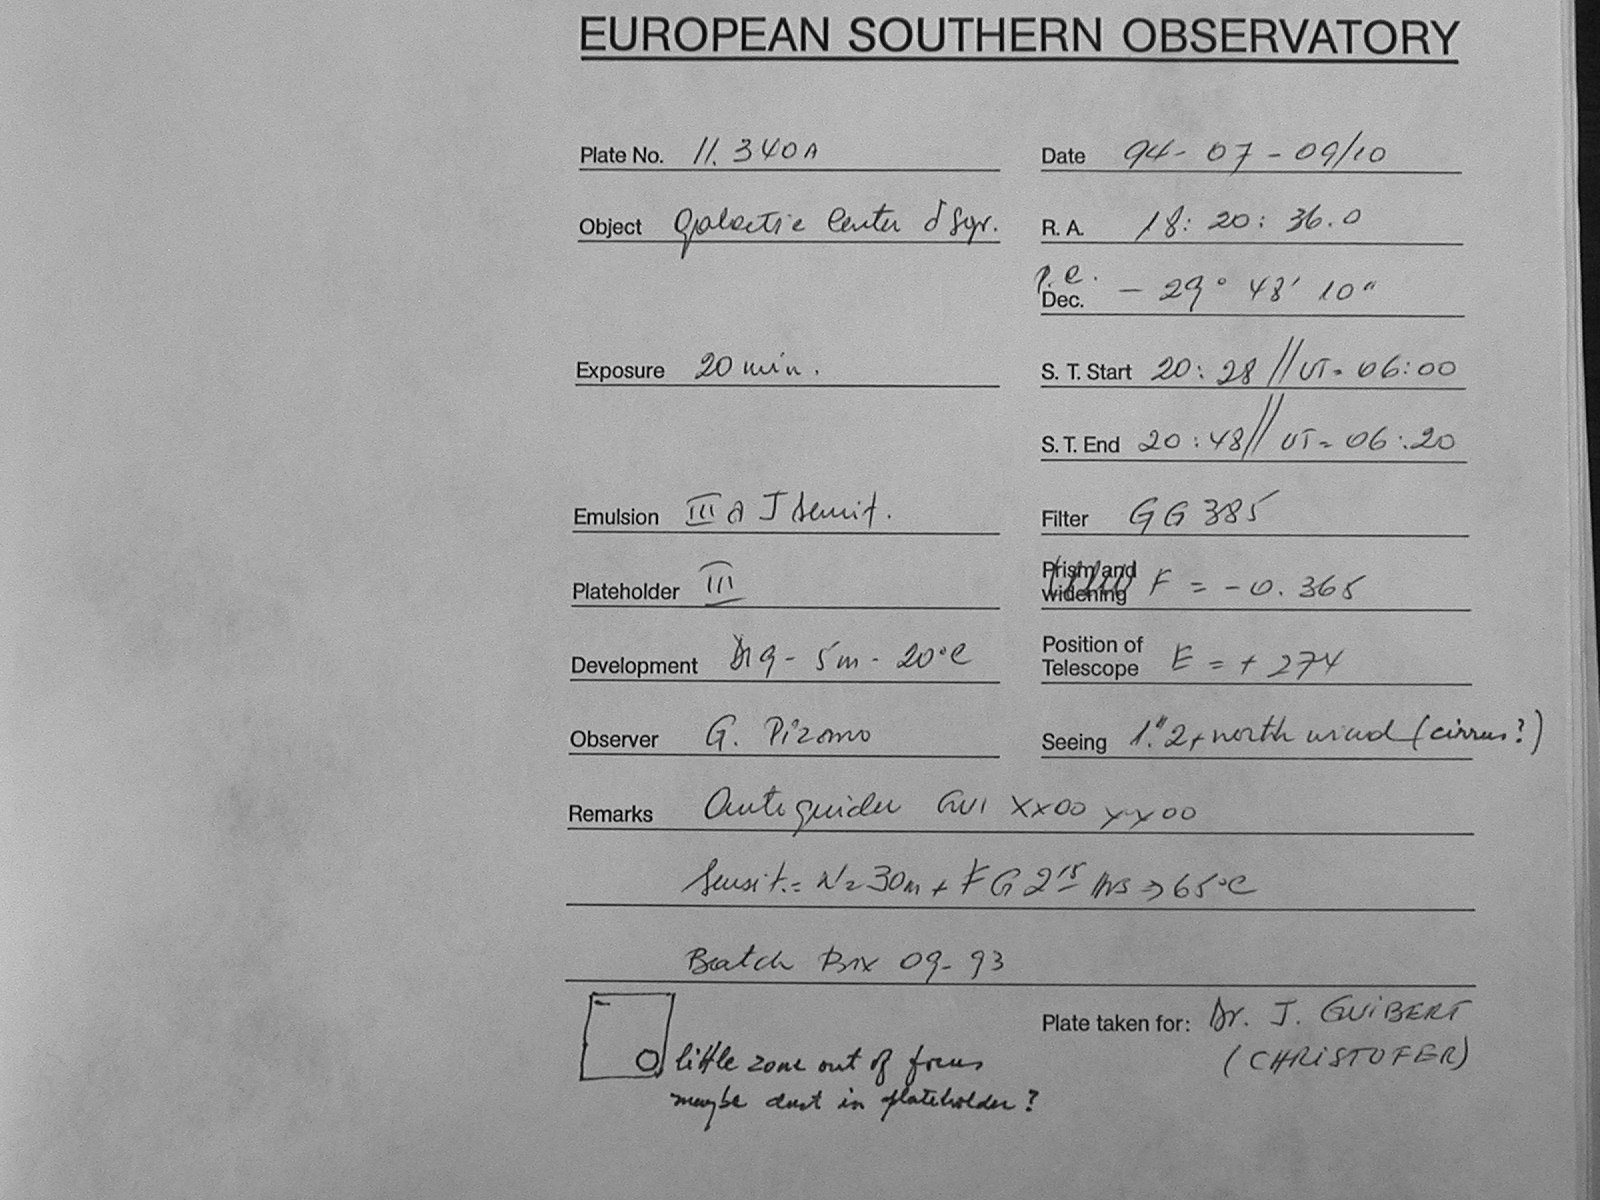 EUROPEAN SOUTHERN OBSERVATORY
Plate No. 11.340A Date 94-07-09/10
Object Galactic Center δ Sgr. R. A. 18: 20: 36.0
Dec. - 29° 48' 10"
Exposure 20 min. S. T. Start 20: 28 // UT= 06:00
S. T. End 20:48 // UT= 06:20
Emulsion III a J sensit. Filter GG 385
Plateholder III Prism and widening F = -0.365
Development D19 - 5m - 20°C Position of Telescope E = + 274
Observer G. Pizarro Seeing 1."2, north wind (cirrus?)
Remarks Autoguider GUI XX00 YY00
Sensit.= N2 30m + FG 2 15 hrs → 65°C
Batch Box 09-93
Plate taken for: Dr. J. GUIBERT
(CHRISTOFER)
little zone out of focus
maybe dust in plateholder?